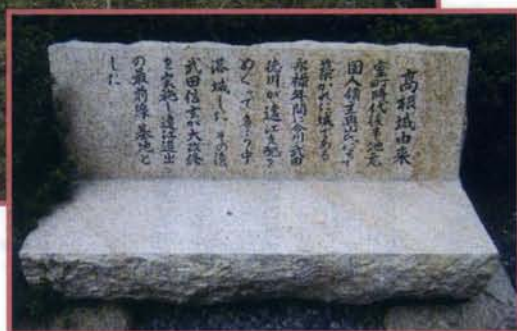 高根城由来
室町時代後半地元
国人領主奥山氏によって
築かれた城である
永禄年間に今川武田
徳川が遠江支配を
めぐって争う中
落城した その後
武田信玄が大改修
を実施し遠江進出
の最前線基地と
した